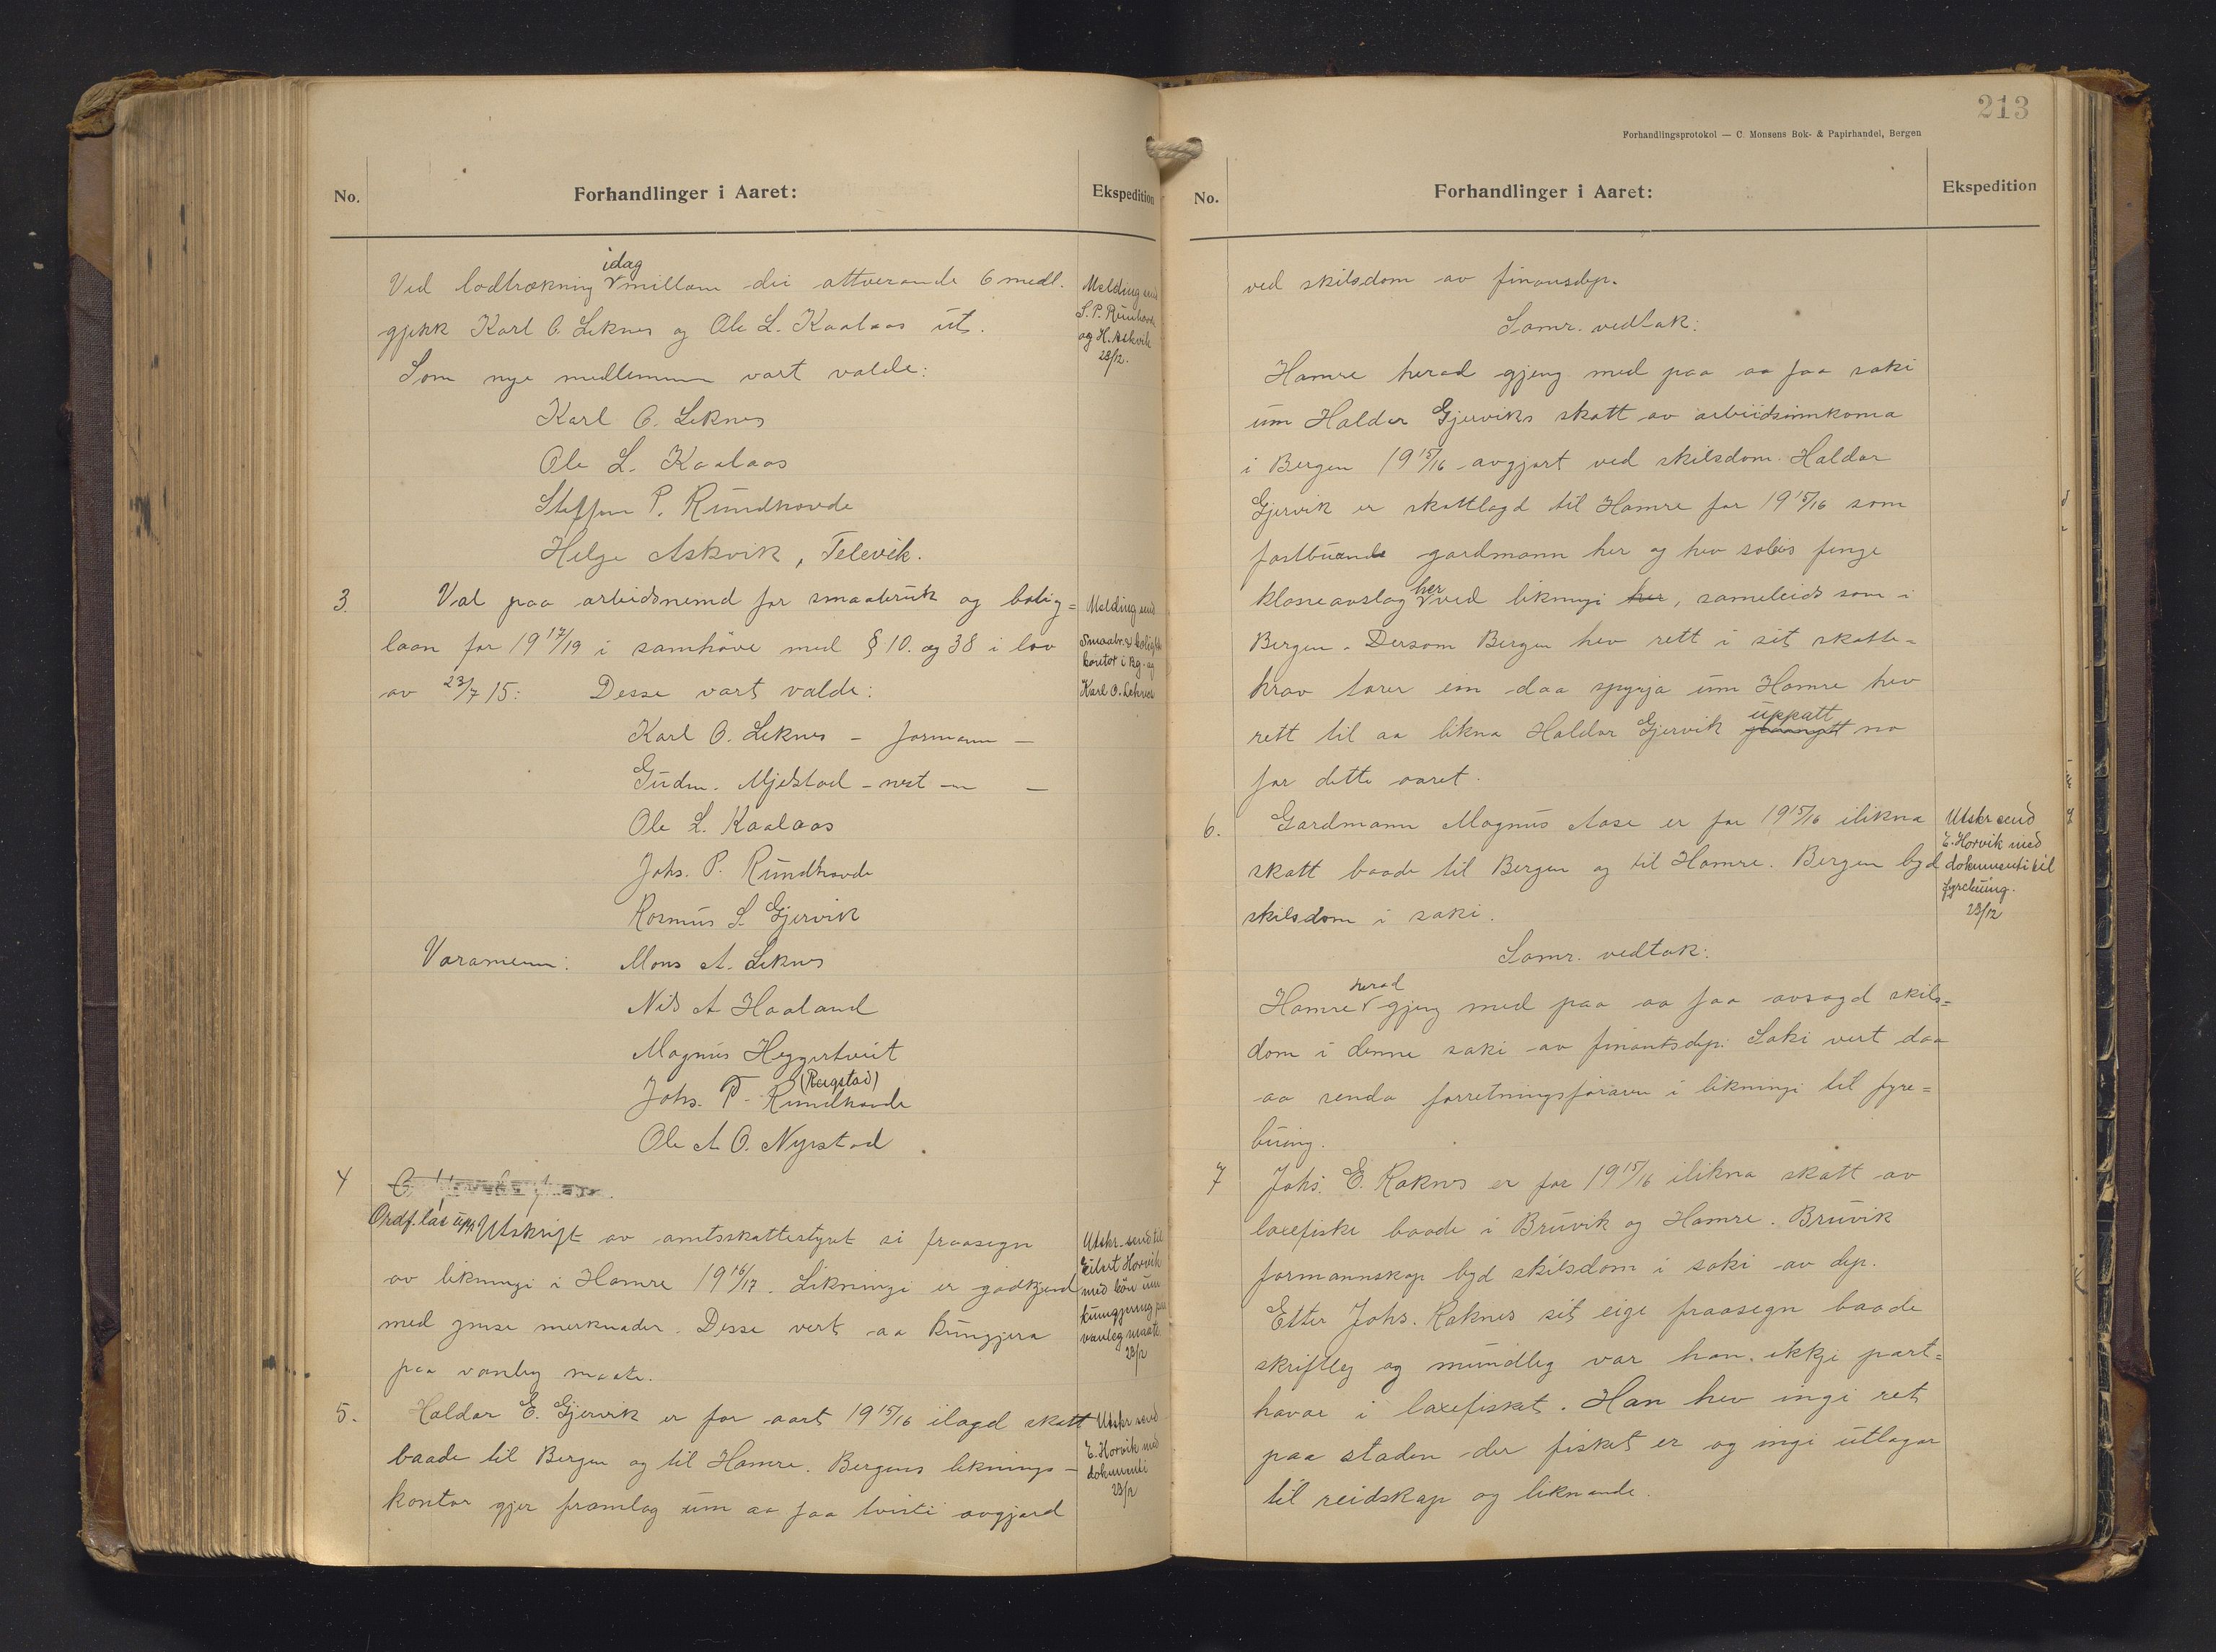 No.
Forhandlinger i Aaret:
Ekspedition
Ved lodtrækning idag millom dei attverande 6 medl.
gjekk Karl O. Leknes og Ole L. Kaalaas ut.
Som nye medlemmer vart valde:
Karl O. Leknes
Ole L. Kaalaas
Steffen P. Rundhovde
Helge Askvik, Televik.
Melding send
S. P. Rundhovde
og H. Askvik
23/12.
3. Val paa arbeidsnemd for smaabruk og bolig=
laan for 1917/19 i samhöve med § 10. og 38 i lov
av 23/7 15: Desse vart valde:
Karl O. Leknes – formann –
Gudm. Mjelstad – nest – –
Ole L. Kaalaas
Johs. P. Rundhovde
Rasmus S. Gjervik
Varamenn: Mons A. Leknes
Nils A Haaland
Magnus Heggertveit
Johs. P. Rundhovde (Ragstad)
Ole A. O. Nyrstad
Melding send
Smaabr. & bolig
kontor i Bg. og
Karl O. Leknes
4
Ordf. las upp Utskrift av amtsskattestyret si fraasegn
av likningi i Hamre 1916/17. Likningi er godkjend
med ymse merknader. Desse vert aa kungjera
paa vanleg maate.
Utskr. send til
Eilert Horvik
med bön um
kunngjering paa
vanleg maate.
23/12
5. Haldor E. Gjervik er for aaret 1915/16 ilagd skatt
baade til Bergen og til Hamre. Bergens liknings-
kontor gjer framlag um aa faa tvisti avgjord
Utskr send
E. Horvik med
dokumenti
23/12
213
Forhandlingsprotokol — C. Monsens Bok- & Papirhandel, Bergen
No.
Forhandlinger i Aaret:
Ekspedition
ved skilsdom av finansdep.
Samr. vedtak:
Hamre herad gjeng med paa aa faa saki
um Haldor Gjerviks skatt av arbeidsinnkoma
i Bergen 1915/16 avgjort ved skilsdom. Haldor
Gjervik er skattlagd til Hamre for 1915/16 som
fastbuande gardmann her og hev soleis fenge
klasseavslag her ved likningi her, sameleids som i
Bergen. Dersom Bergen hev rett i sit skatte=
krav torer ein daa spyrja um Hamre hev
rett til aa likna Haldor Gjervik uppatt no
for dette aaret.
6. Gardmann Magnus Aase er for 1915/16 ilikna
skatt baade til Bergen og til Hamre. Bergen byd
skilsdom i saki.
Samr. vedtak:
Hamre herad gjeng med paa aa faa avsagd skils=
dom i denne saki av finantsdep. Saki vert daa
aa senda forretningsföraren i likningi til fyre=
buing.
Utskr send
E. Horvik med
dokumenti til
fyrebuing.
23/12
7 Johs. E. Raknes er for 1915/16 ilikna skatt av
laxefiske baade i Bruvik og Hamre. Bruvik
formannskap byd skilsdom i saki av dep.
Etter Johs. Raknes sit eige fraasegn baade
skriftleg og mundleg var han ikkje part=
havar i laxefisket. Han hev ingi ret
paa staden der fisket er og ingi utlagor
til reidskap og liknande.